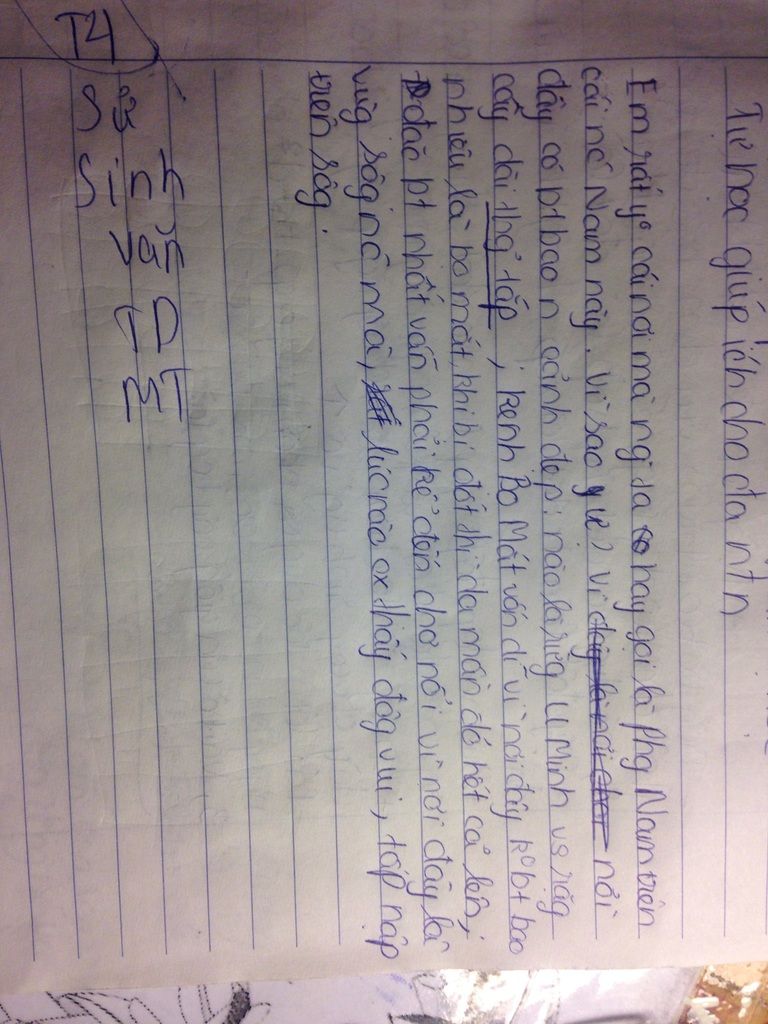 Tự học giúp ích cho đa ntn
Em rất y° cái nơi mà ng ta hay gọi là Phg Nam trên
cái nc Nam này. Vì sao y ư? Vì đây là nơi chot nơi
đây có pt bao n cảnh đẹp: nào là rừg U Minh vs rặg
cây dài thg tắp; kenh Bo Mát vốn dĩ vì nơi đây k° bt bao
nhiêu là bo mát, khi bị đốt thì da mấn đỏ hết cả lên;
đặc bt nhất vẫn phải kể đến chợ nổi vì nơi đây là
vùg sôg nc mà, lúc nào cx thấy đôg vui, tấp nập
trên sôg.
T4
Sử
Sinh
Văn
CD
MT